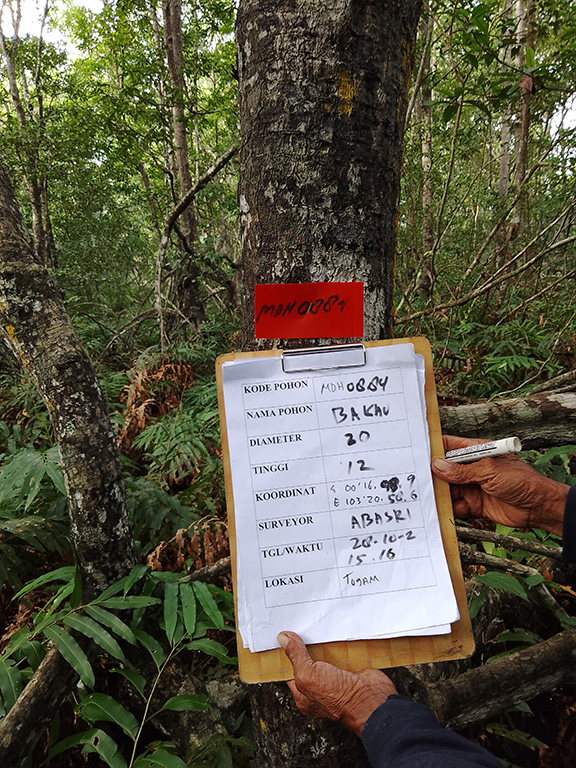 MDH0884
KODE POHON MDH0884
NAMA POHON BAKAU
DIAMETER 20
TINGGI 12
KOORDINAT S 00°16. 9
E 103°20. 50.6
SURVEYOR ABASRI
TGL/WAKTU 28-10-2
15.16
LOKASI TUGAM